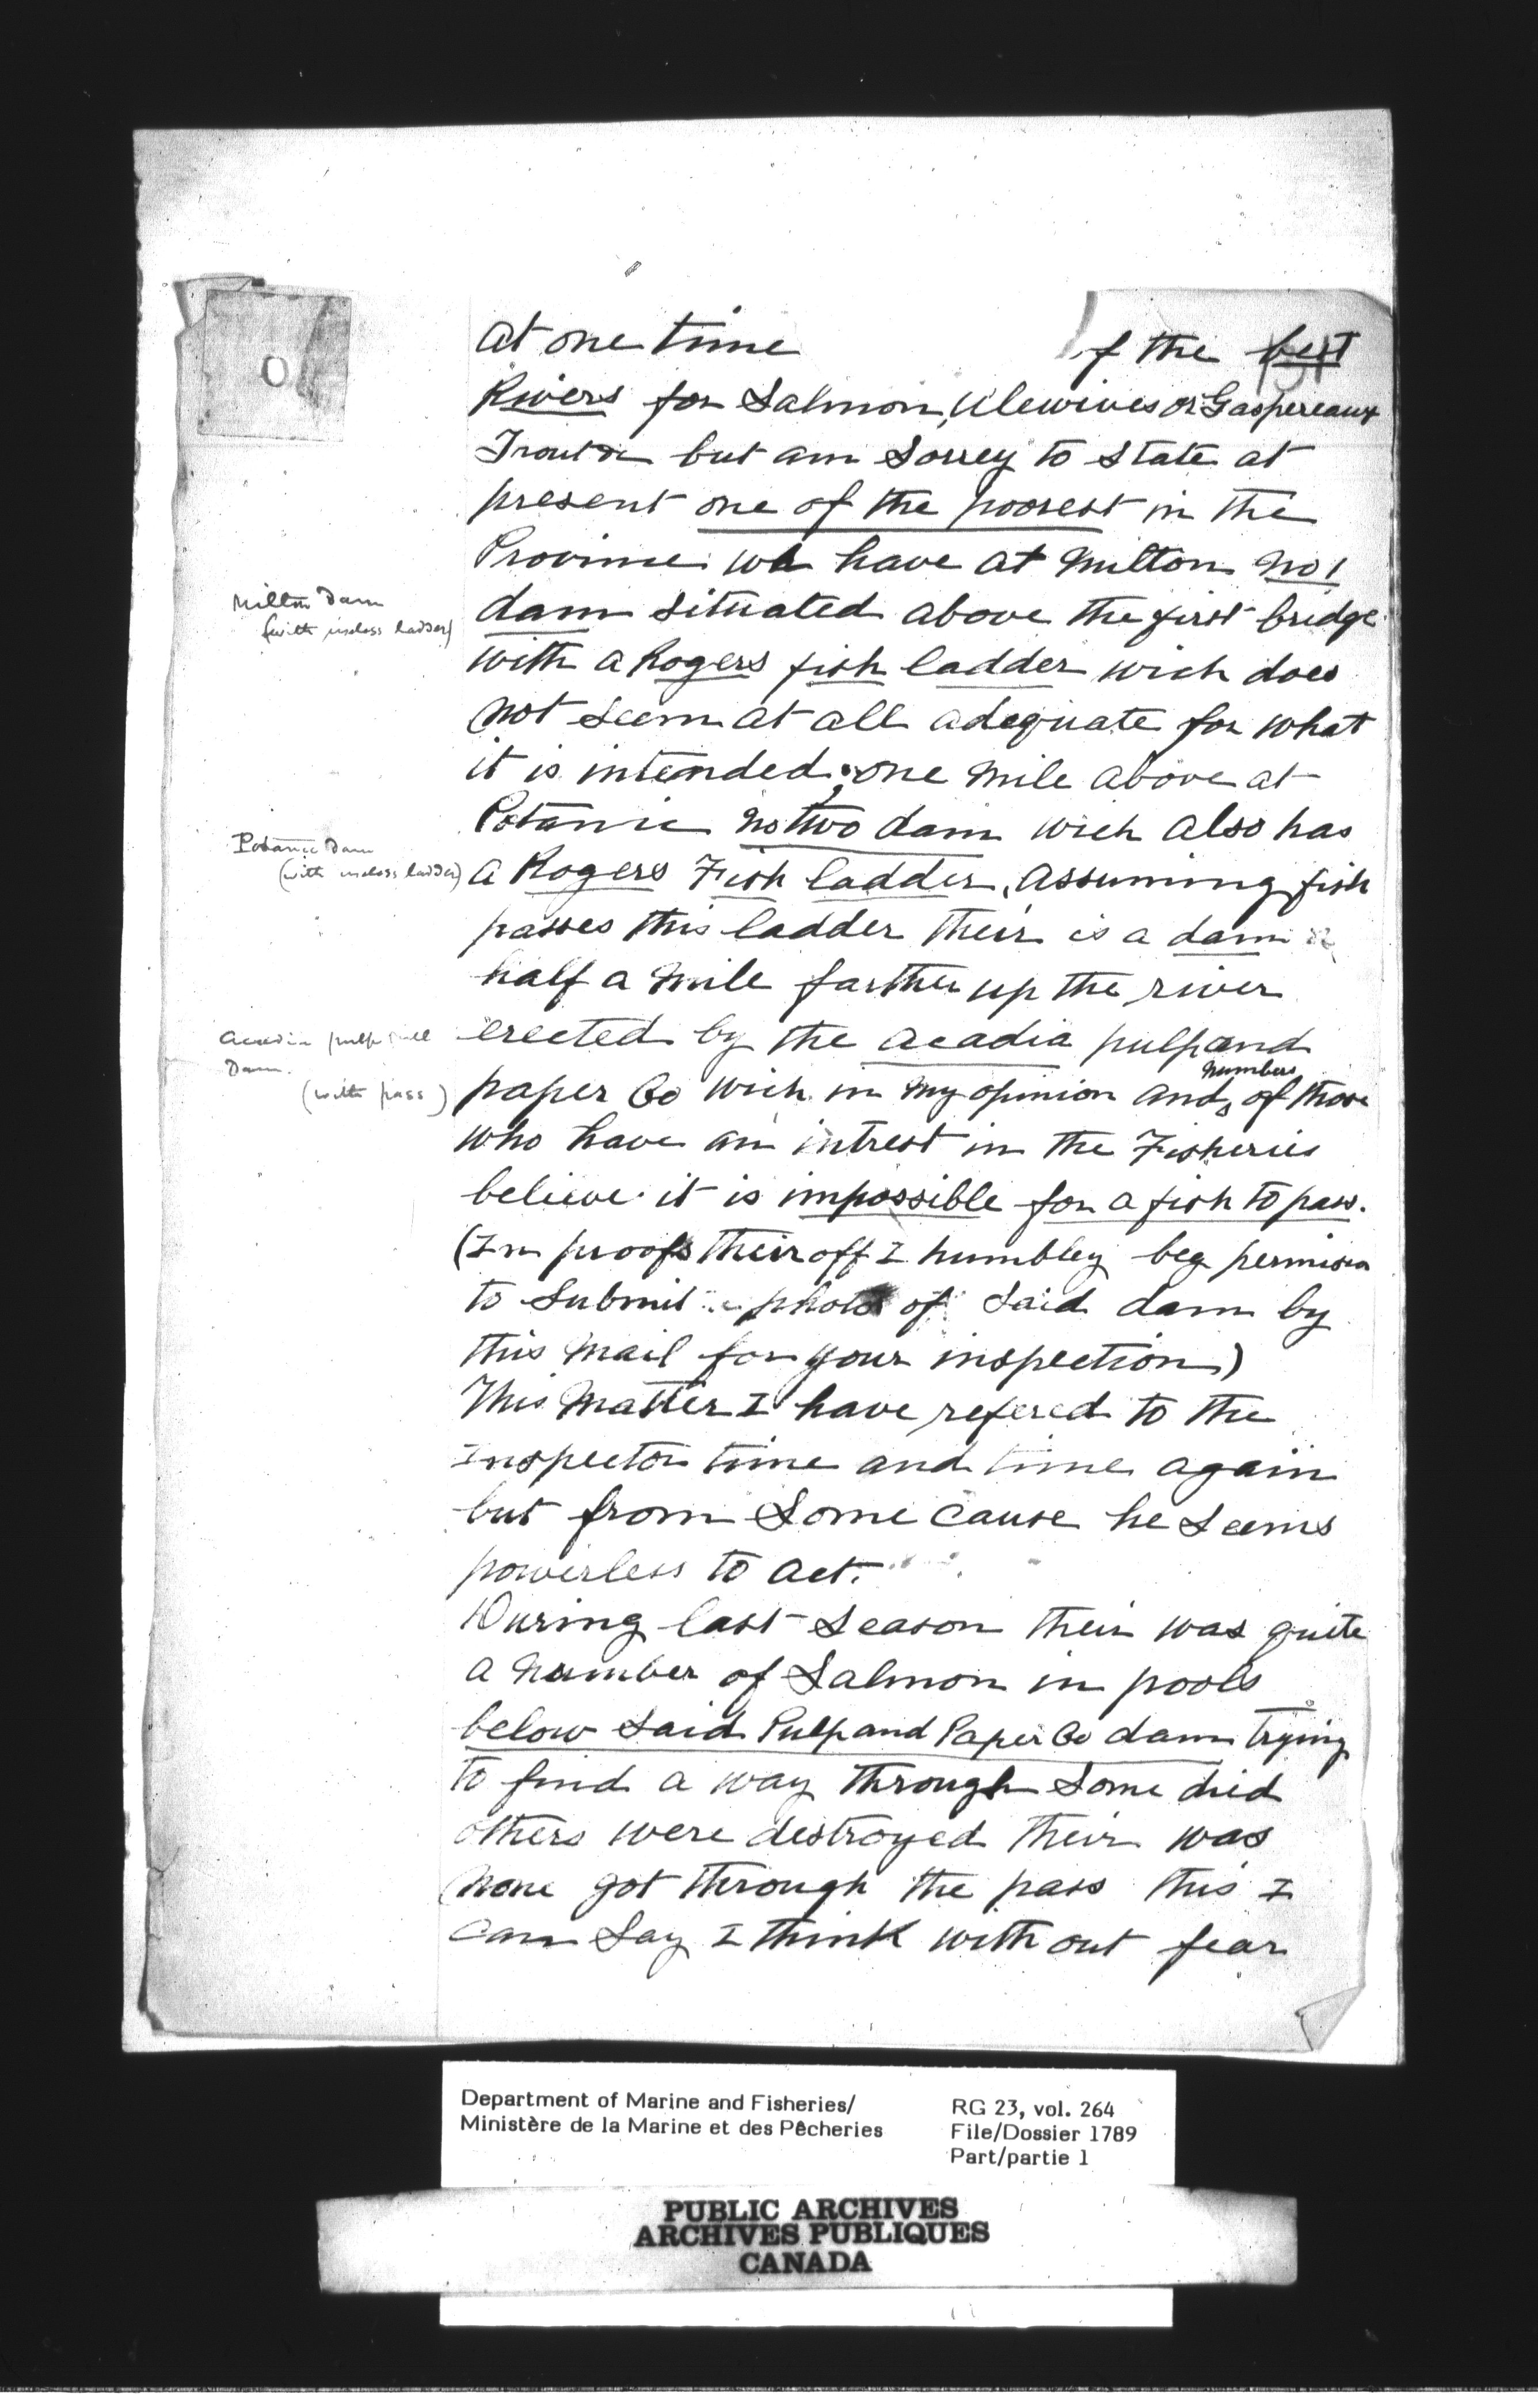 at one time f the best
Rivers for Salmon, Alewives or Gaspereaux
Trout &c but am Sorrey to State at
present one of the poorest in the
Province we have at Milton No 1
Milton Dam
(with useless ladder)
dam situated above the first bridge
with a Rogers fish ladder wich does
not seem at all adequate for what
it is intended; one mile above at
Potanic No two dam wich also has
Potanic Dam
(with useless ladder)
a Rogers Fish ladder, assuming fish
passes this ladder their is a dam
half a mile farther up the river
Acadia pulp mill
Dam.
(with pass)
erected by the Acadia pulp and
paper Co wich in my opinion and numbers of those
who have an intrest in the Fisheries
believe it is impossible for a fish to pass.
(In proofs theiroff I humbley beg permision
to Submit a photo of Said dam by
this Mail for your inspection)
This Matter I have refered to the
Inspector time and time again
but from Some cause he Seems
powerless to act.
During last Season their was quite
a number of Salmon in pools
below Said Pulp and Paper Co dam trying
to find a way through Some died
others were destroyed their was
none got through the pass this I
can Say I think with out fear
Department of Marine and Fisheries/
Ministère de la Marine et des Pêcheries
RG 23, vol. 264
File/Dossier 1789
Part/partie 1
PUBLIC ARCHIVES
ARCHIVES PUBLIQUES
CANADA